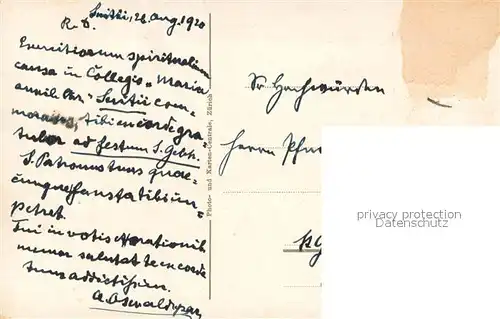 Suitii, 26. Aug. 1920
R. D.
Exercitiorum spiritualium
causa in Collegio "Maria
auxiliar" Suitii com-
morans, tibi ex corde gra-
tulor ad festum S. Gebh.
S. Patronus tuus quae-
cunque fausta tibi im-
petret.
Tui in votis & orationib
memor salutat te ex corde
tum addictissim.
A. Oswald, par,
Photo- und Karten-Centrale, Zürich
Sr Hochwürden
Herrn Pfar
privacy protection
Datenschutz